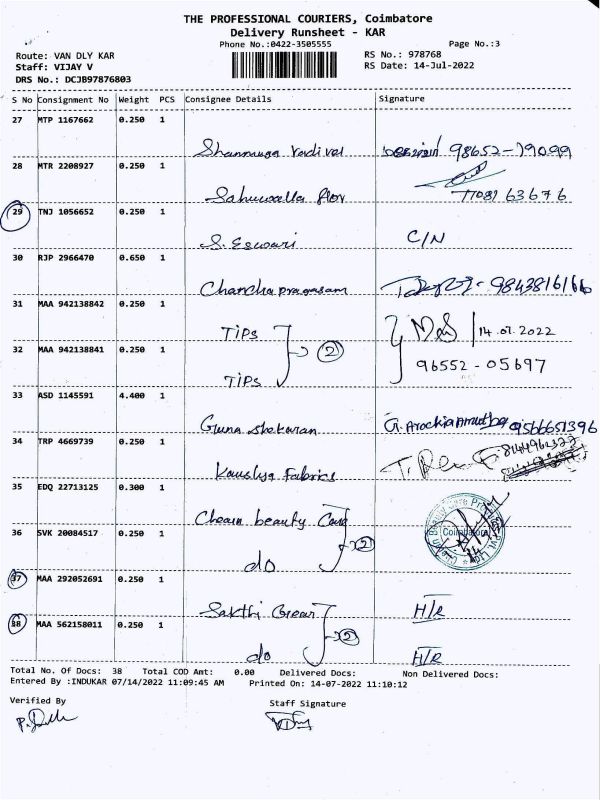 THE PROFESSIONAL COURIERS, Coimbatore
Delivery Runsheet - KAR
Phone No.:0422-3505555
Page No.:3
Route: VAN DLY KAR
RS No.: 978768
Staff: VIJAY V
RS Date: 14-Jul-2022
DRS No.: DCJB97876803
S No Consignment No Weight PCS Consignee Details Signature
27 MTP 1167662 0.250 1
Shanmuga Vadivel 98652-19099
28 MTR 2208927 0.250 1
Sahuwalla flor 77081 63676
29 TNJ 1056652 0.250 1
S. Eswari C/N
30 RJP 2966470 0.650 1
Chandrapragasam 9843816166
31 MAA 942138842 0.250 1
TIPS 14.07.2022
32 MAA 942138841 0.250 1
2 96552-05697
TIPS
33 ASD 1145591 4.400 1
Guna Shekaran G. 9566651396
34 TRP 4669739 0.250 1
8144962322
Kauslya Fabrics
35 EDQ 22713125 0.300 1
beauty Care
36 SVK 20084517 0.250 1
2 Coimbatore
do
37 MAA 292052691 0.250 1
Sakthi Gear H/R
38 MAA 562158011 0.250 1
2
do H/R
Total No. Of Docs: 38 Total COD Amt: 0.00 Delivered Docs: Non Delivered Docs:
Entered By :INDUKAR 07/14/2022 11:09:45 AM Printed On: 14-07-2022 11:10:12
Verified By Staff Signature